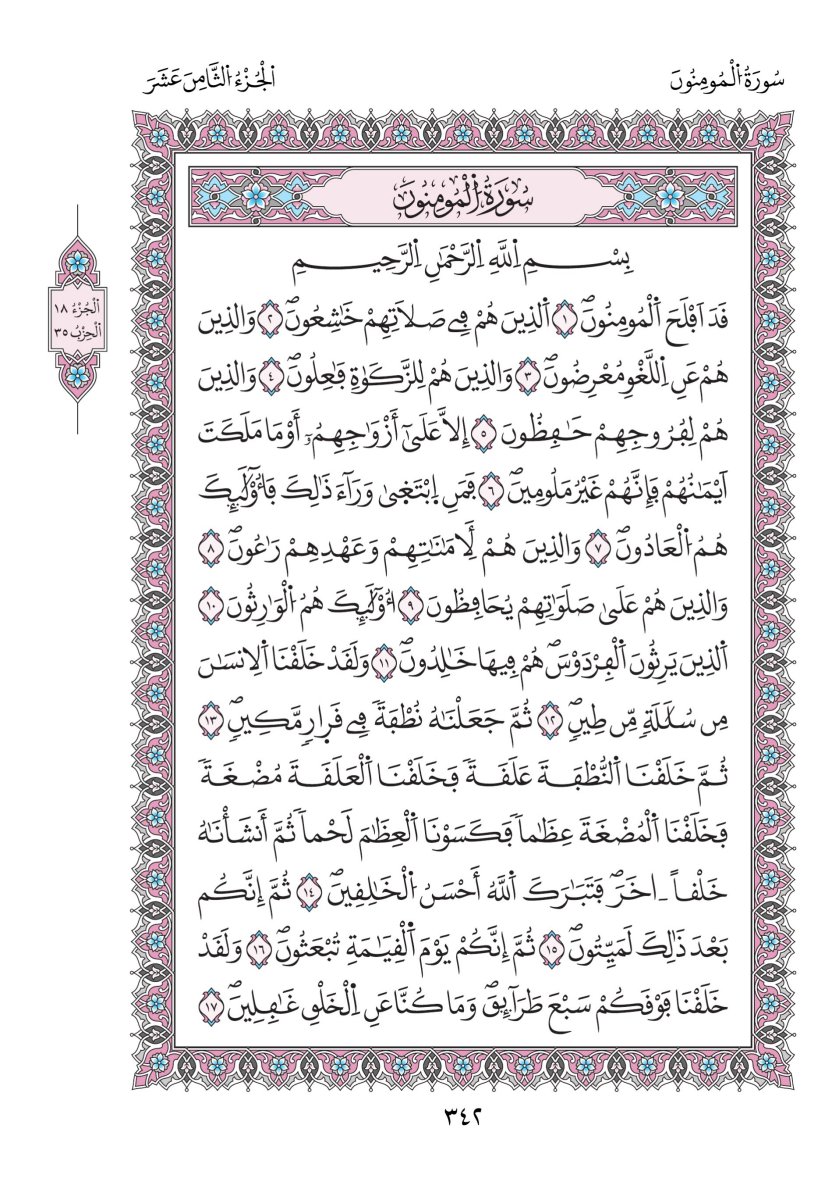 سُورَةُ اُ۬لْمُومِنُونَ
اَ۬لْجُزْءُ اُ۬لثَّامِنَ عَشَرَ
سُورَةُ اُ۬لْمُومِنُونَ
اَلْجُزْءُ ١٨
اَلْحِزْبُ ٣٥
بِسْمِ اِ۬للَّهِ اِ۬لرَّحْمَٰنِ اِ۬لرَّحِيمِ
قَدَ اَفْلَحَ اَ۬لْمُومِنُونَۖ ١ اَ۬لذِينَ هُمْ فِي صَلَاتِهِمْ خَٰشِعُونَۖ ٢ وَالذِينَ
هُمْ عَنِ اِ۬للَّغْوِ مُعْرِضُونَۖ ٣ وَالذِينَ هُمْ لِلزَّكَوٰةِ فَٰعِلُونَۖ ٤ وَالذِينَ
هُمْ لِفُرُوجِهِمْ حَٰفِظُونَ ٥ إِلَّا عَلَىٰٓ أَزْوَٰجِهِمُۥٓ أَوْ مَا مَلَكَتَ
اَيْمَٰنُهُمْ فَإِنَّهُمْ غَيْرُ مَلُومِينَۖ ٦ فَمَنِ اِ۪بْتَغ۪ىٰ وَرَآءَ ذَٰلِكَ فَأُوْلَٰٓئِكَ
هُمُ اُ۬لْعَادُونَۖ ٧ وَالذِينَ هُمْ لِأَمَٰنَٰتِهِمْ وَعَهْدِهِمْ رَٰعُونَۖ ٨
وَالذِينَ هُمْ عَلَىٰ صَلَوَٰتِهِمْ يُحَافِظُونَ ٩ أُوْلَٰٓئِكَ هُمُ اُ۬لْوَٰرِثُونَ ١٠
اَ۬لذِينَ يَرِثُونَ اَ۬لْفِرْدَوْسَۖ هُمْ فِيهَا خَٰلِدُونَۖ ١١ وَلَقَدْ خَلَقْنَا اَ۬لِانسَٰنَ
مِن سُلَٰلَةٍ مِّن طِينٍۖ ١٢ ثُمَّ جَعَلْنَٰهُ نُطْفَةً فِي قَرَارٍ مَّكِينٍۖ ١٣
ثُمَّ خَلَقْنَا اَ۬لنُّطْفَةَ عَلَقَةً فَخَلَقْنَا اَ۬لْعَلَقَةَ مُضْغَةً
فَخَلَقْنَا اَ۬لْمُضْغَةَ عِظَٰماً فَكَسَوْنَا اَ۬لْعِظَٰمَ لَحْماً ثُمَّ أَنشَأْنَٰهُ
خَلْقاً ـاخَرَۖ فَتَبَٰرَكَ اَ۬للَّهُ أَحْسَنُ اُ۬لْخَٰلِقِينَۖ ١٤ ثُمَّ إِنَّكُم
بَعْدَ ذَٰلِكَ لَمَيِّتُونَۖ ١٥ ثُمَّ إِنَّكُمْ يَوْمَ اَ۬لْقِيَٰمَةِ تُبْعَثُونَۖ ١٦ وَلَقَدْ
خَلَقْنَا فَوْقَكُمْ سَبْعَ طَرَآئِقَۖ وَمَا كُنَّا عَنِ اِ۬لْخَلْقِ غَٰفِلِينَۖ ١٧
٣٤٢